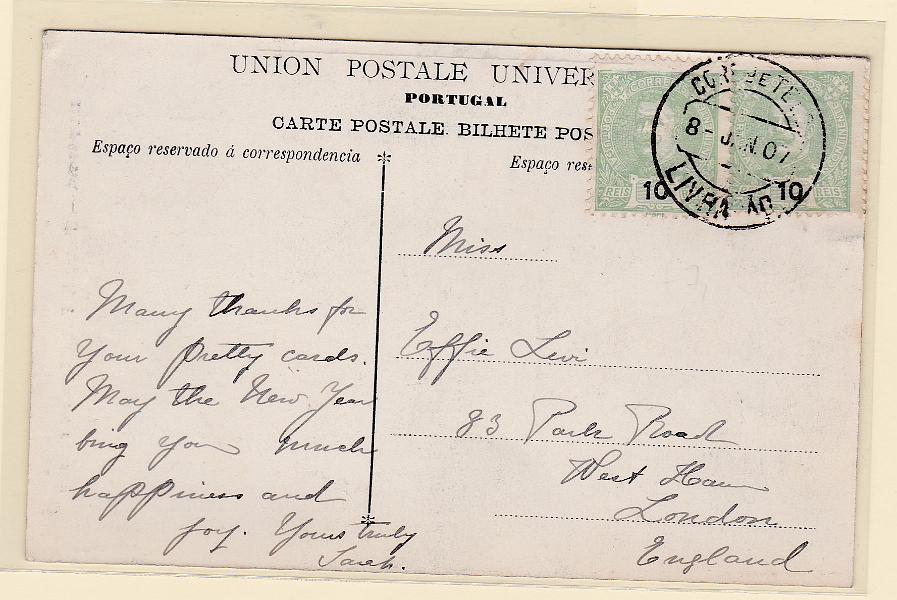 UNION POSTALE UNIVER
PORTUGAL
CARTE POSTALE. BILHETE POS
Espaço reservado á correspondencia
Espaço res
CORREIOS
REIS
10
REIS
10
8- JAN 07
Miss
Effie Levi
83 Park Road
West Ham
London
England
Many thanks for
your pretty cards.
May the New Year
bring you much
happiness and
joy. Yours truly
Sarah.